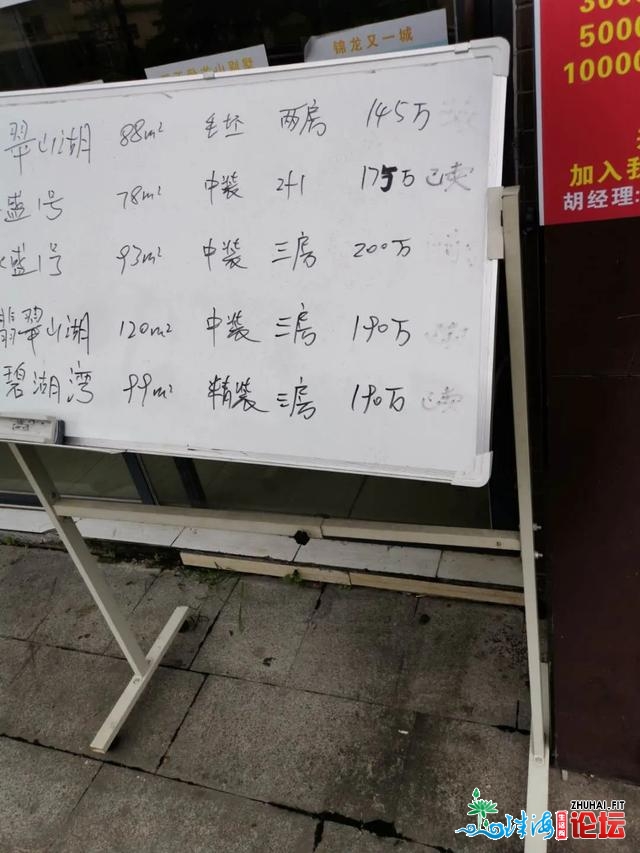 锦龙又一城
山别墅
3000
5000
10000
加入我
胡经理:
翠山湖 88m² 毛坯 两房 145万
盛1号 78m² 中装 2+1 175万 已卖
盛1号 93m² 中装 三房 200万
翡翠山湖 120m² 中装 三房 190万
碧湖湾 99m² 精装 三房 190万 已卖
ZHUHAI.FIT
珠海生活圈论坛